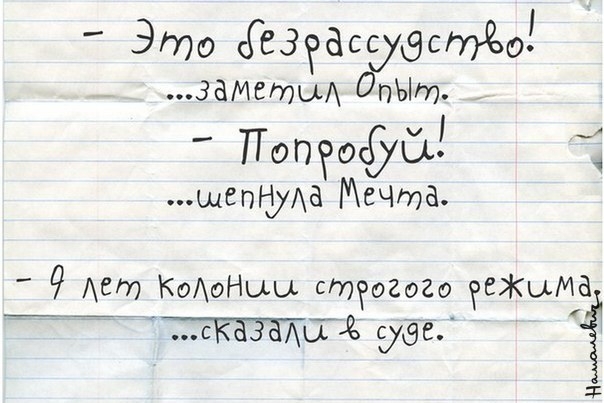 - Это безрассудство!
...заметил Опыт.
- Попробуй!
...шепнула Мечта.
- 9 лет колонии строгого режима.
...сказали в суде.
Намалевич